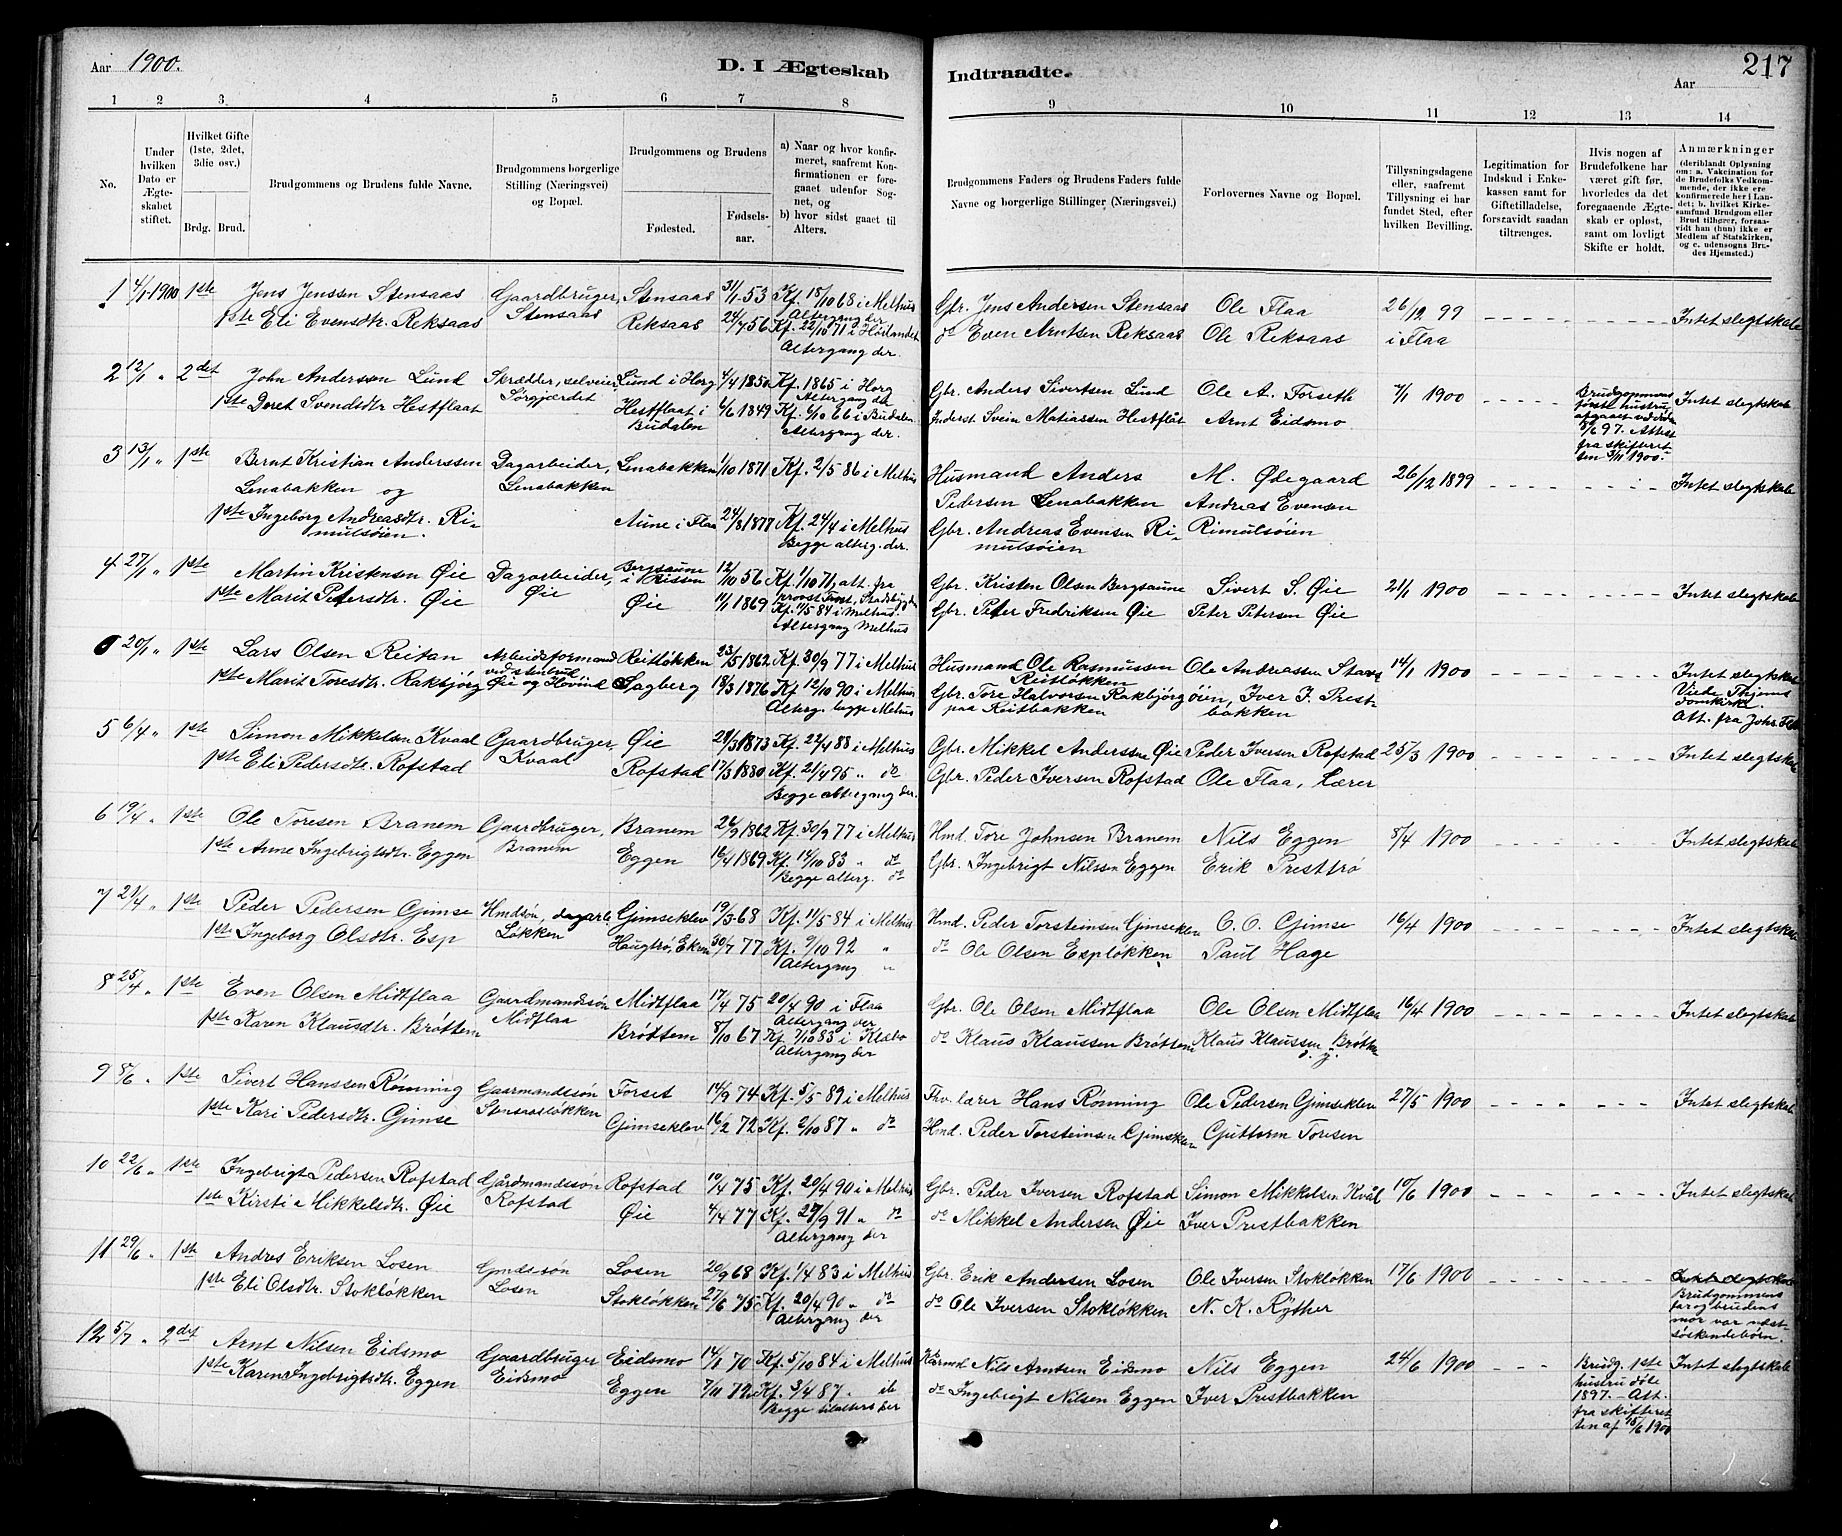 Aar 1900.
D. I Ægteskab
Indtraadte.
217
Aar
1 2 3 4 5 6 7 8 9 10 11 12 13 14
No.
Under hvilken Dato er Ægteskabet stiftet.
Hvilket Gifte (1ste, 2det, 3die osv.)
Brdg. Brud.
Brudgommens og Brudens fulde Navne.
Brudgommens borgerlige Stilling (Næringsvei) og Bopæl.
Brudgommens og Brudens
Fødested.
Fødselsaar.
a) Naar og hvor konfirmeret, saafremt Konfirmationen er foregaaet udenfor Sognet, og
b) hvor sidst gaaet til Alters.
Brudgommens Faders og Brudens Faders fulde Navne og borgerlige Stillinger (Næringsvei.)
Forlovernes Navne og Bopæl.
Tillysningsdagene eller, saafremt Tillysning ei har fundet Sted, efter hvilken Bevilling.
Legitimation for Indskud i Enkekassen samt for Giftetilladelse, forsaavidt saadan tiltrænges.
Hvis nogen af Brudefolkene har været gift før, hvorledes da det foregaaende Ægteskab er opløst, samt om lovligt Skifte er holdt.
Anmærkninger (deriblandt Oplysning om: a. Vakcination for de Brudefolks Vedkommende, der ikke ere konfirmerede her i Landet; b. hvilket Kirkesamfund Brudgom eller Brud tilhører, forsaavidt han (hun) ikke er Medlem af Statskirken, og c. udensogns Brudes Hjemsted.)
1 4/1 1900 1ste Jens Jenssen Stensaas Gaardbruger, Stensaas Stensaas 31/1 53 Kf. 18/10 68 i Melhus Altergang der Gbr. Jens Andersen Stensaas Ole Flaa 26/12 99 i Flaa Intet slegtskab
1ste Eli Evensdtr. Reksaas Reksaas 24/7 56 Kf. 22/10 71 i Høilandet Altergang der. do Even Arntsen Reksaas Ole Reksaas
2 12/1 " 2det John Andersen Lund Skrædder, selveier, Sørgjærdet Lund i Horg 4/4 1850 Kf. 1865 i Horg Altergang der Gbr. Anders Sivertsen Lund Ole A. Forseth 7/1 1900 Brudgommens første hustru afgaaet ved døden 8/6 97. Attest fra skifteretten 3/11 1900. Intet slegtskab
1ste Doret Svendsdtr Hestflaat Hestflaat i Budalen 6/6 1849 Kf. 6/10 66 i Budalen Altergang der. Inderst Svein Matiassen Hestflåt Arnt Eidsmo
3 13/1 " 1ste Bernt Kristian Anderssen Lenabakken og Dagarbeider, Lenabakken Lenabakken 1/10 1871 Kf. 2/5 86 i Melhus Husmand Anders Pedersen Lenabakken M. Ødegaard 26/12 1899 Intet slegtskab
1ste Ingeborg Andreasdtr. Rimulsøien. Aune i Flaa 24/8 1877 Kf. 24/4 i Melhus Begge alterg. der. Gbr. Andreas Evensen Rimulsøien Andreas Evensen Rimulsøien
4 27/1 " 1ste Martin Kristensen Øie Dagarbeider, Øie Bergsaune i Rissen 12/10 56 Kf. 1/10 71, att. fra provst Frost, Stadsbygden Gbr. Kristen Olsen Bergsaune Sivert S. Øie 21/1 1900 Intet slegtskab
1ste Marit Petersdtr. Øie Øie 11/1 1869 Kf. 11/5 84 i Melhus. Altergang Melhus Gbr. Peter Fredriksen Øie Peter Petersen Øie
20/1 " 1ste Lars Olsen Reitan Arbeidsformand ved Øie og Hovind Reitløkken 23/5 1862 Kf. 30/9 77 i Melhus Husmand Ole Rasmussen Reitløkken Ole Andreassen 14/1 1900 Intet slegtskab Viede Thjems domkirke. Att. fra
1ste Marit Toresdtr. Rakbjørg Sagberg 18/3 1876 Kf 12/10 90 i Melhus Alterg. begge Melhus Gbr. Tore Halvorsen Rakbjørg paa Reitbakken øien, Iver J. Prestbakken
5 6/4 " 1ste Simon Mikkelsen Kvaal Gaardbruger, Kvaal Øie 29/3 1873 Kf. 22/4 88 i Melhus Gbr. Mikkel Anderssen Øie Peder Iversen Rofstad 25/3 1900 Intet slegtskab
1ste Eli Pedersdtr. Rofstad Rofstad 17/3 1880 Kf. 21/4 95 " do Begge altergang der. Gbr. Peder Iversen Rofstad Ole Flaa, Lærer
6 19/4 " 1ste Ole Toresen Branem Gaardbruger, Branem Branem 26/9 1862 Kf. 30/9 77 i Melhus Hmd. Tore Johnsen Branem Nils Eggen 8/4 1900 Intet slegtskab
1ste Anne Ingebrigtsdtr. Eggen Eggen 16/4 1869 Kf. 14/10 83 " do Begge alterg. do Gbr. Ingebrigt Nilssen Eggen Erik Presttrø
7 21/4 " 1ste Peder Pedersen Gimse Hmdsøn, dagarb Løkken Gimseklev 19/3 68 Kf. 11/5 84 i Melhus Hmd. Peder Torsteinsen Gimseklev O. O. Gimse 16/4 1900 Intet slegtskab
1ste Ingeborg Olsdtr. Esp Haugtrø, 30/7 77 Kf. 9/10 92 " Altergang " do Ole Olsen Espløkken Paul Hage
8 25/4 " 1ste Even Olsen Midtflaa Gaardmandssøn Midflaa Midtflaa 17/4 75 20/4 90 i Flaa Altergang der Gbr. Ole Olsen Midtflaa Ole Olsen Midtflaa 16/4 1900 Intet slegtskab
1ste Karen Klausdtr. Brøttem Brøttem 8/10 67 Kf. 7/10 83 i Klæbo Altergang der do Klaus Klaussen Brøttem Klaus Klaussen Brøttem d. y.
9 8/6 " 1ste Sivert Hanssen Rønning Gaarmandssøn Stensaasløkken Forset 14/9 74 Kf. 5/5 89 i Melhus Fhv. lærer Hans Rønning Ole Pedersen Gimseklev 27/5 1900 Intet slegtskab
1ste Kari Pedersdtr. Gimse Gimseklev 16/2 72 Kf. 6/10 87 " do Hmd. Peder Torsteinsen Gimseklev Guttorm Toresen
10 22/6 " 1ste Ingebrigt Pedersen Rofstad Gårdmandssøn Rofstad Rofstad 19/4 75 Kf. 20/4 90 i Melhus Gbr. Peder Iversen Rofstad Simon Mikkelsen Kvål 10/6 1900 Intet slegtskab
1ste Kirsti Mikkelsdtr. Øie Øie 4/4 77 Kf. 27/9 91 " do Altergang der do Mikkel Andersen Øie Iver Prestbakken
11 29/6 " 1ste Andres Eriksen Losen Gmdssøn Losen Losen 20/9 68 Kf. 1/4 83 i Melhus Gbr. Erik Andersen Losen Ole Iversen Stokløkken 17/6 1900 Intet slegtskab Brudgommens far og brudens mor var næstsøskendebørn.
1ste Eli Olsdtr. Stokløkken Stokløkken 27/6 75 Kf. 20/4 90 " do Altergang der do Ole Iversen Stokløkken N. K. Ryther
12 5/7 " 2det Arnt Nilsen Eidsmo Gaardbruger Eidsmo Eidsmo 14/1 70 Kf. 5/10 84 i Melhus Nils Arntsen Eidsmo Nils Eggen 24/6 1900 Brudg. 1ste hustru døde 1897. - Att. fra skifteretten af 15/6 1900 Intet slegtskab
1ste Karen Ingebrigtsdtr. Eggen Eggen 7/11 72 Kf. 3/4 87. Begge tilalters der do Ingebrigt Nilsen Eggen Iver Prestbakken